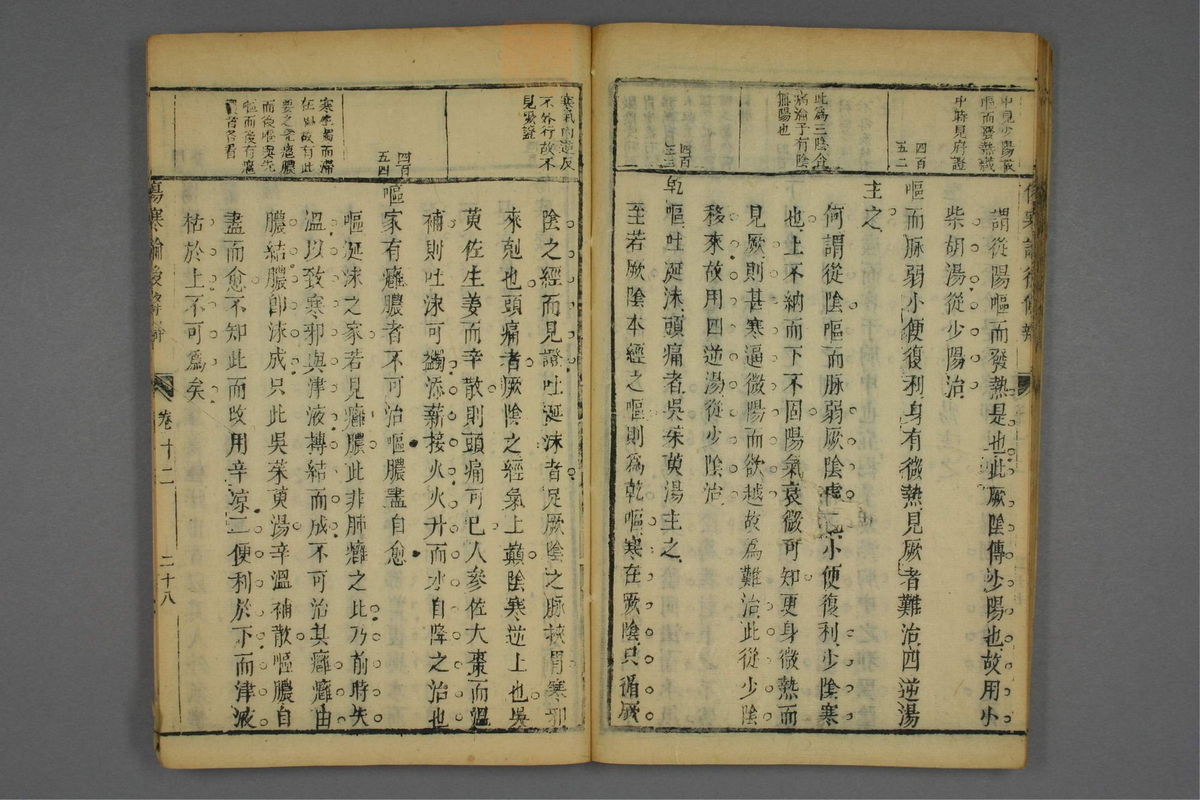 中見少陽證
嘔而發熱識
中時見府證
四百
五二
此爲三陰合
病淪于有陰
無陽也
四百
五三
謂從陽嘔而發熱是也此厥陰傳少陽也故用小
柴胡湯從少陽治
嘔而脉弱小便復利身有微熱見厥者難治四逆湯
主之
何謂從陰嘔而脉弱厥陰虛也小便復利少陰寒
也上不納而下不固陽氣衰微可知更身微熱而
見厥則甚寒逼微陽而欲越故爲難治此從少陰
移來故用四逆湯從少陰治
乾嘔吐涎沫頭痛者吳茱萸湯主之
至若厥陰本經之嘔則爲乾嘔寒在厥陰只循厥
寒氣內逆反
不外行故不
見厥證
四百
五四
寒坐獨而滯
任
要之先癰膿
而後嘔與先
嘔而後有癰
者各看
陰之經而見證吐涎沫者是厥陰之脉挾胃寒邪
來剋也頭痛者厥陰之經氣上巔陰寒逆上也吳
萸佐生姜而辛散則頭痛可已人參佐大棗而溫
補則吐沫可蠲添薪接火火升而水自降之治也
嘔家有癰膿者不可治嘔膿盡自愈
嘔涎沫之家若見癰膿此非肺癰之比乃前時失
溫以致寒邪與津液摶結而成不可治其癰癰由
膿結膿卽沫成只此吳茱萸湯辛溫補散嘔膿自
盡而愈不知此而改用辛凉二便利於下而津液
枯於上不可爲矣
傷寒論後條辨
卷十二
二十八